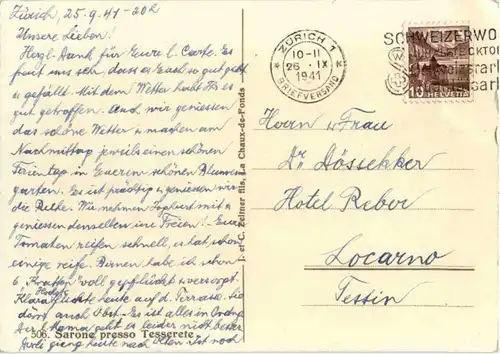 Zürich, 25.9.41 - 20h
Unsere Lieben!
Herzl. Dank für Eure l. Carte. Es
freut uns sehr, dass es Euch so gut geht
u. gefällt. Mit dem Wetter habt Ihr es
gut getroffen. Auch wir geniessen
das schöne Wetter u. machen am
Nachmittag jeweils einen schönen
Ferientag in Euerem schönen Blumen-
garten. Es ist prächtig u. geniessen wir
die Ruhe. Wir nehmen Joghurt mit u.
geniessen denselben im Freien! Eure
Tomaten reifen schnell, es hat schon
einige reife. Birnen habe ich schon
6 voll gepflückt u. versorgt.
Klara flückte heute auf d. Terrasse. Sie
dörrt auch Obst. Es ist alles in Ordng.
Der l. Mama geht es leider nicht besser
gieng heute nach Olten. Ist noch
506. Sarone presso Tesserete
E. et C. Zeltner fils, La Chaux-de-Fonds
ZÜRICH 1
10-11
26. IX
1941
BRIEFVERSAND
SCHWEIZERWO
Herrn u. Frau
Dr. Dössekker
Hotel Reber
Locarno
Tessin